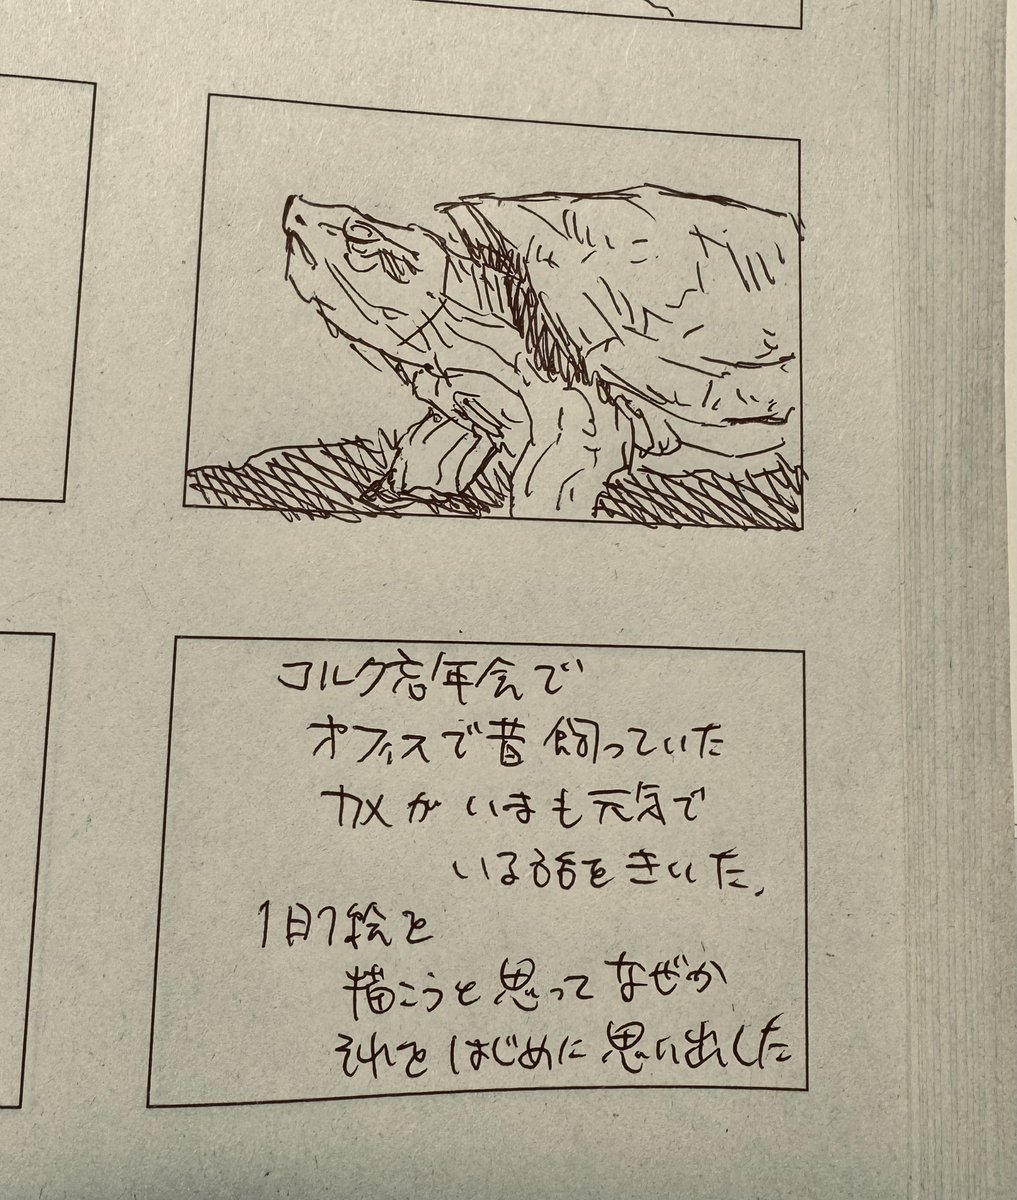 コルク忘年会で
オフィスで昔飼っていた
カメがいまも元気で
いる話をきいた。
1日1絵を
描こうと思ってなぜか
それをはじめに思い出した